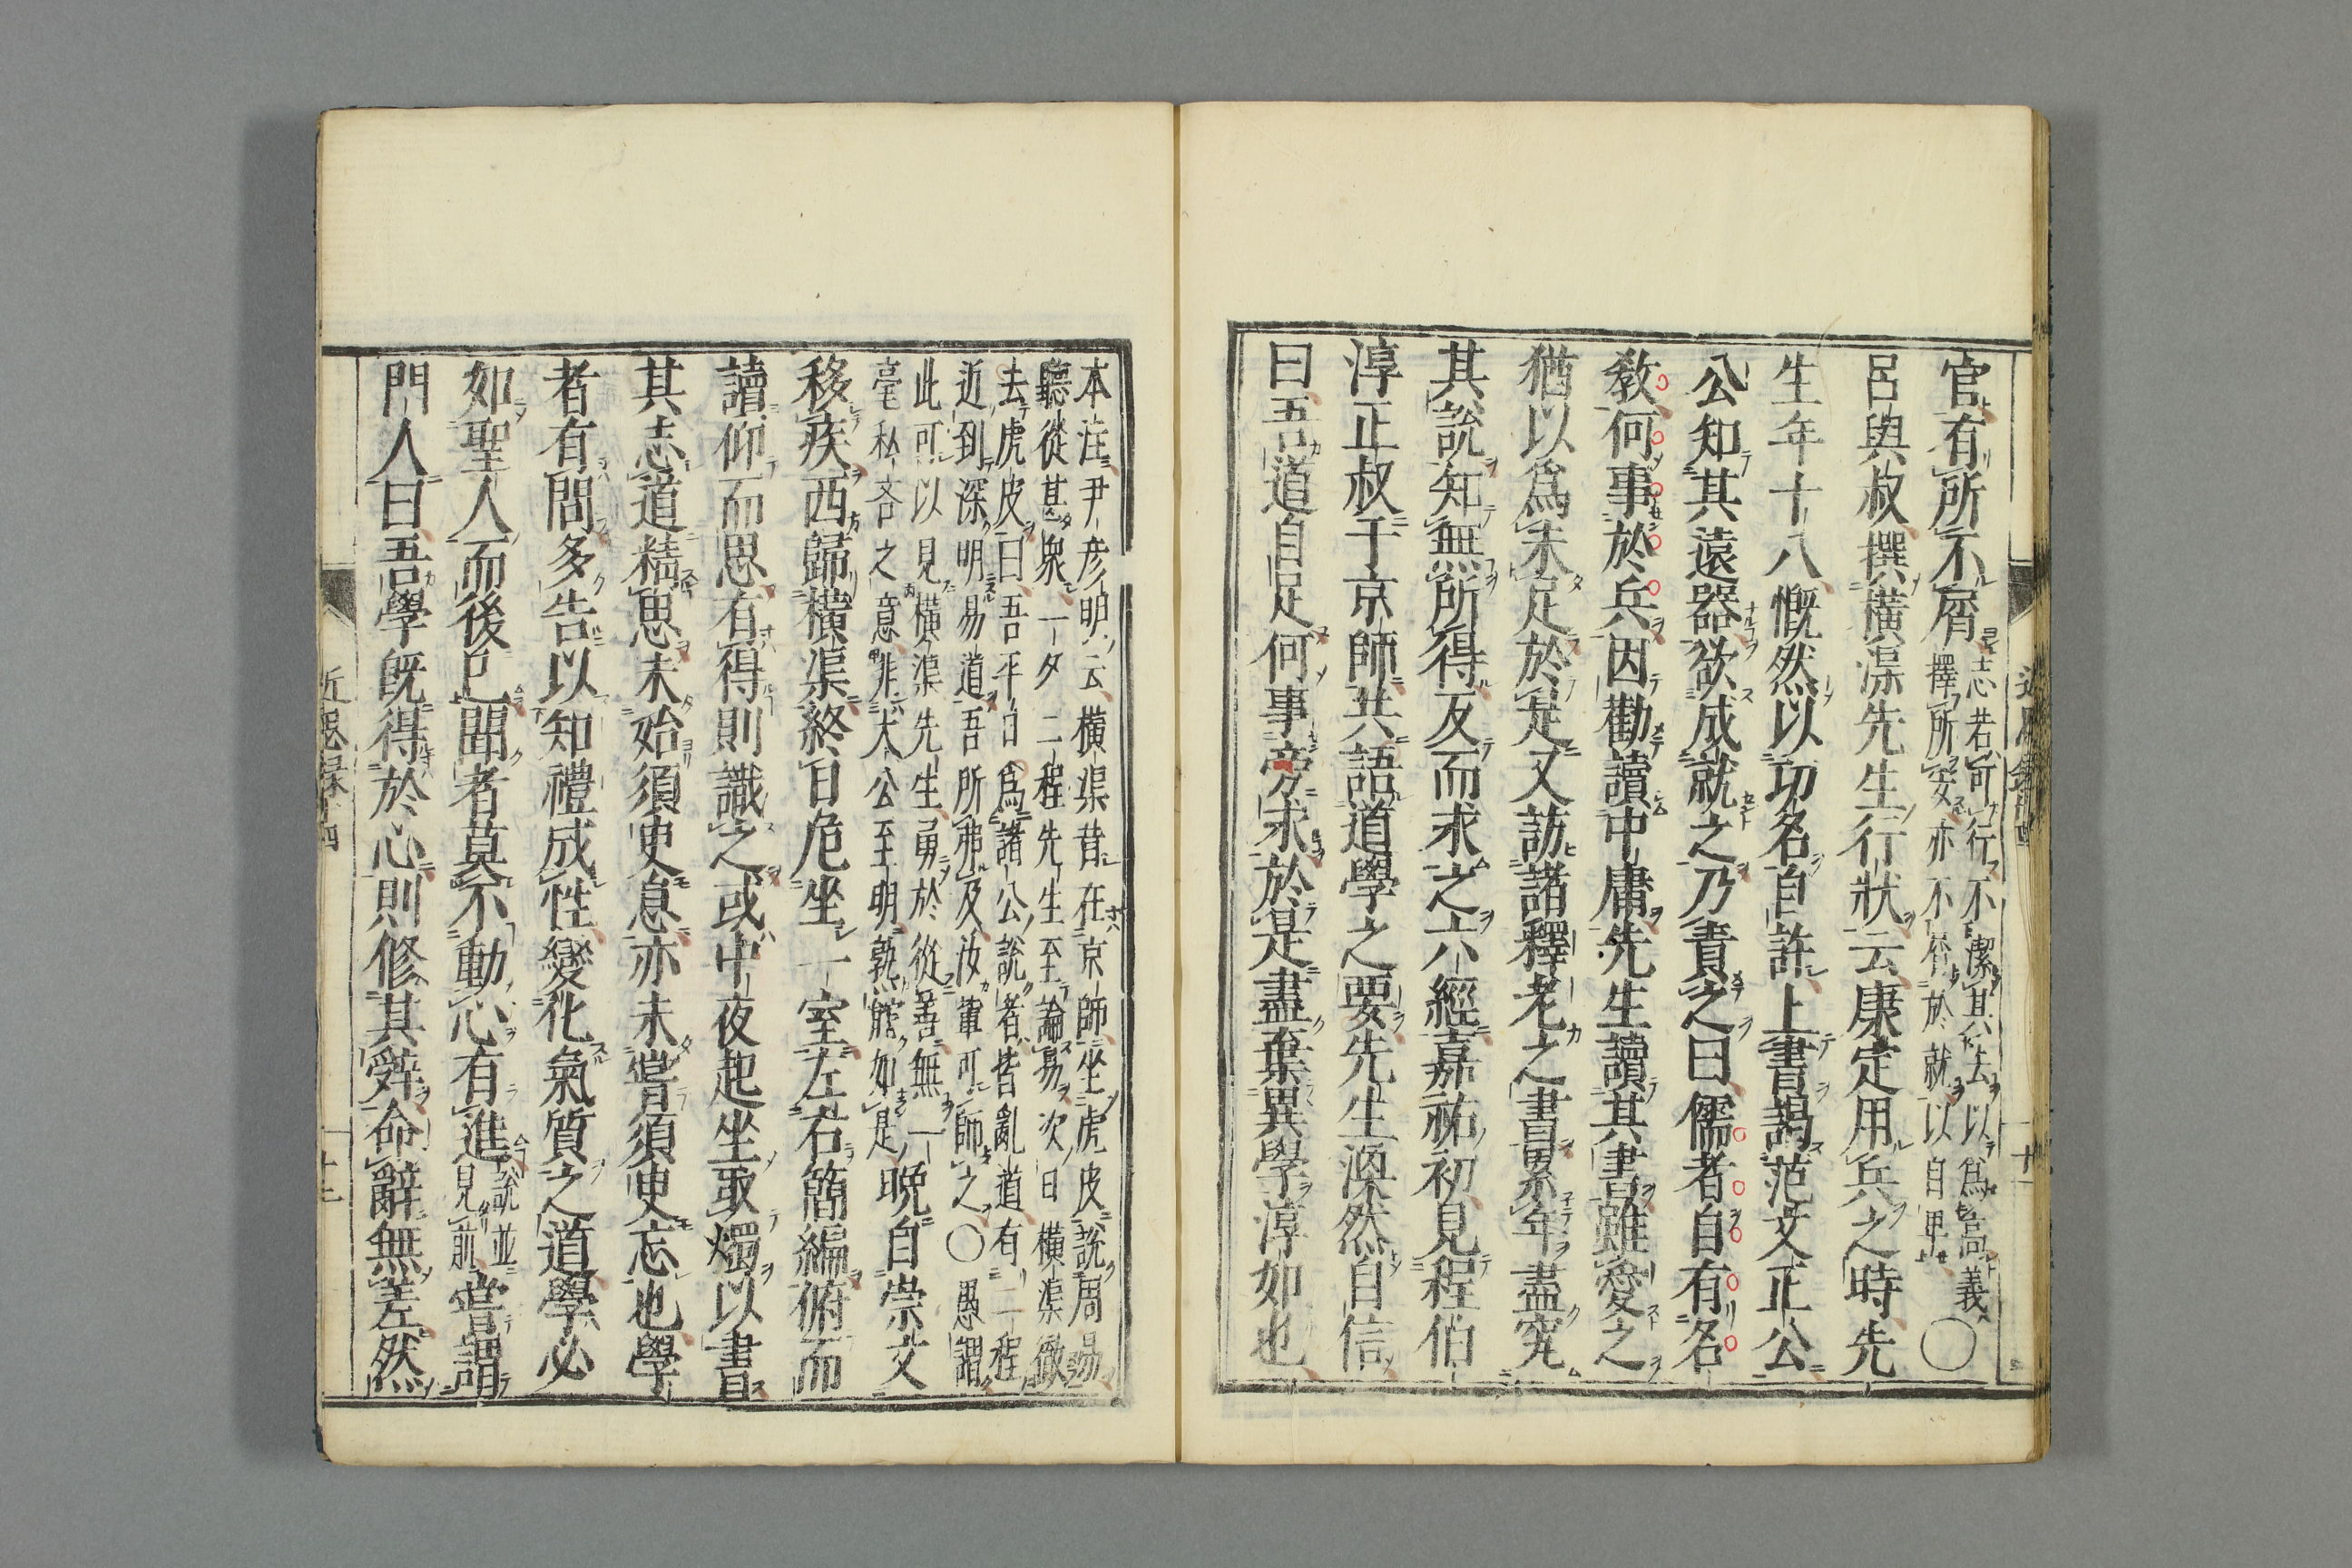 官有所不屑志若所行不潔其行去以爲高義
擇所安亦不屑於就以自卑〇
呂與叔撰橫渠先生行狀云康定用兵之時先
生年十八慨然以功名自許上書謁范文正公
公知其遠器欲成就之乃責之曰儒者自有名
敎何事於兵因勸讀中庸先生讀其書雖愛之
猶以爲未足於是又訪諸釋老之書累年盡究
其說知無所得反而求之六經嘉祐初見程伯
淳正叔于京師共語道學之要先生渙然自信
曰吾道自足何事旁求於是盡棄異學淳如也
本注尹彥明云橫渠昔在京師坐虎皮說周易
聽從甚衆一夕二程先生至論易次日橫渠徹
去虎皮曰吾平日爲諸公說者皆亂道有二程
近到深明易道吾所弗及汝輩可師之〇愚謂
此可以見橫渠先生勇於從善無一
毫私吝之意非大公至明孰能如是
晩自崇文
移疾西歸橫渠終日危坐一室左右簡編俯而
讀仰而思有得則識之或中夜起坐取燭以書
其志道精思未始須臾息亦未嘗須臾忘也學
者有問多告以知禮成性變化氣質之道學必
如聖人而後已聞者莫不動心有進說並
見前嘗謂
門人曰吾學旣得於心則修其辭命辭無差然
近思録十四
十二